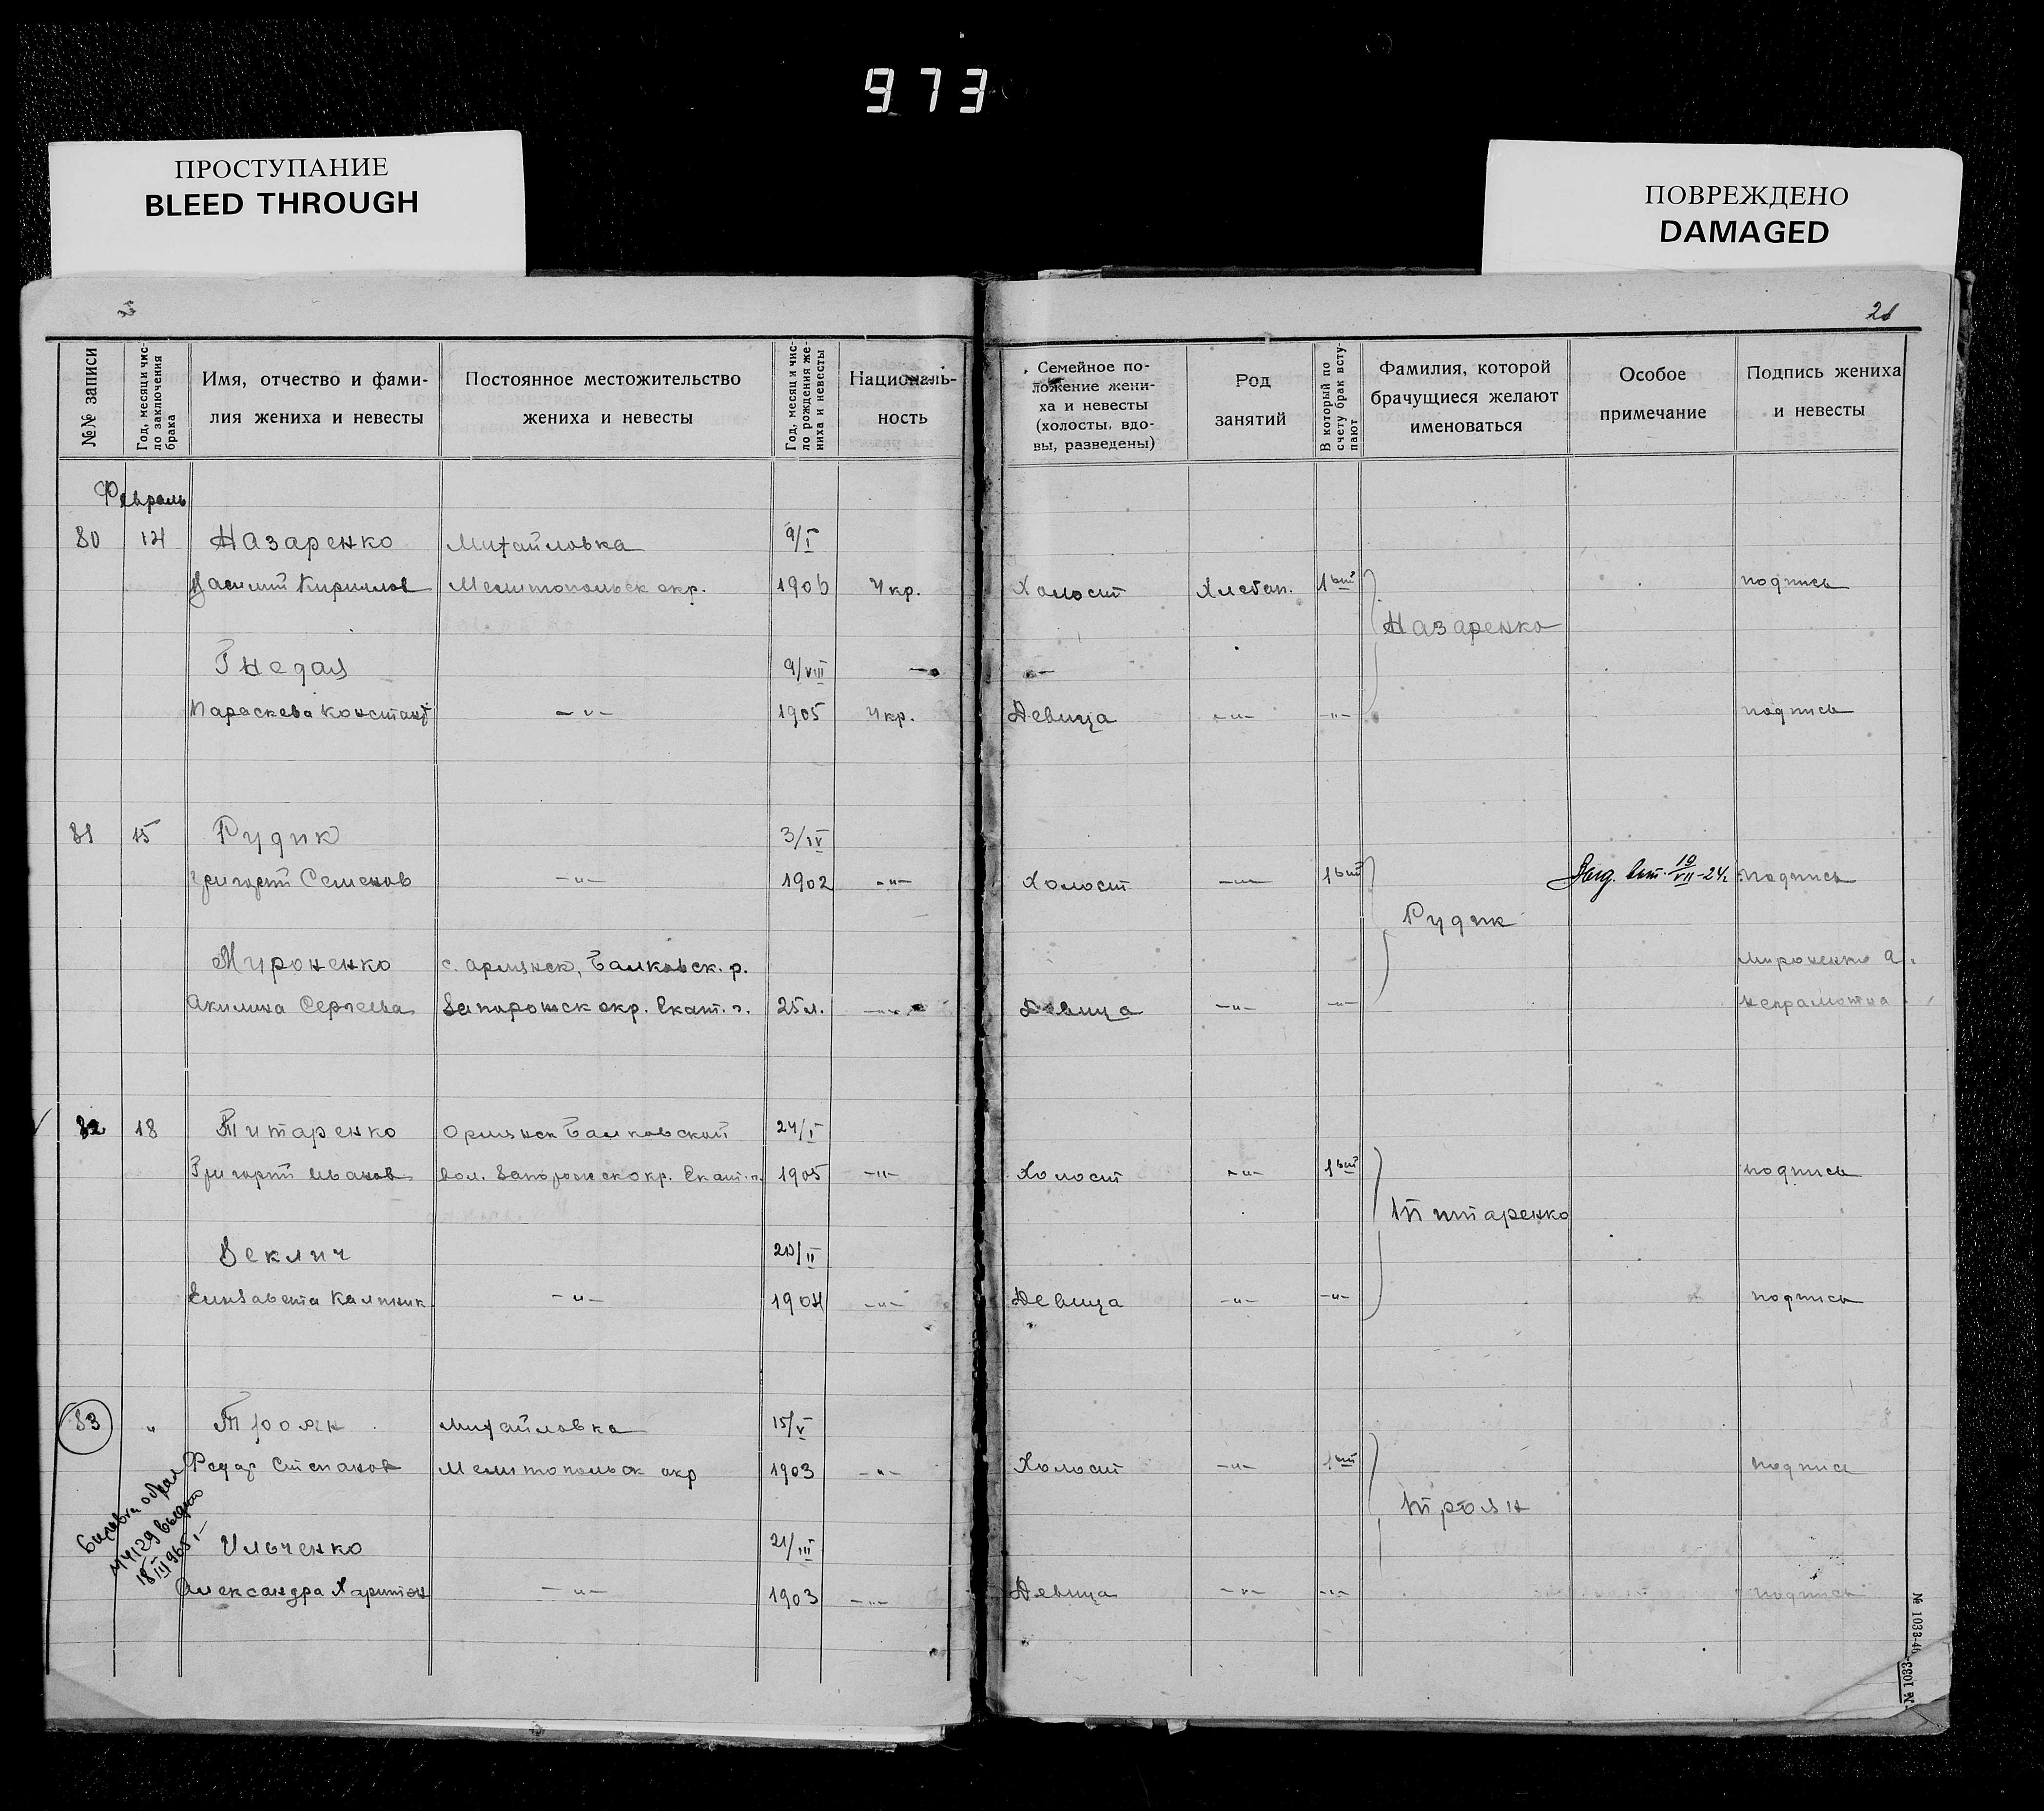 973
ПРОСТУПАНИЕ
BLEED THROUGH
ПОВРЕЖДЕНО
DAMAGED
№№ записи
Год, месяц и чис-
ло заключения
брака
Имя, отчество и фами-
лия жениха и невесты
Постоянное местожительство
жениха и невесты
Год, месяц и чис-
ло рождения же-
ниха и невесты
Националь-
ность
Семейное по-
ложение жени-
ха и невесты
(холосты, вдо-
вы, разведены)
Род
занятий
В который по
счету брак всту-
пают
Фамилия, которой
брачущиеся желают
именоваться
Особое
примечание
Подпись жениха
и невесты
Февраль
80 14 Назаренко Михайловка 9/I
Василий Кириллов Мелитопольск окр. 1906 Укр. Холост Хлебоп. 1ый подпись
Назаренко
Гнедая 9/VIII
Параскева Констант —"— 1905 Укр. Девица —"— —"— подпись
81 15 Рудик 3/IV
Григорий Семенов —"— 1902 —"— Холост —"— 1ый 19/VII-24г. подпись
Рудик
Мироненко с. Орлянск, Балковск. р. Мироненко А.
Акилина Сергеева Запорожск окр. Екат. г. 25 л. —"— Девица —"— —"— неграмотна
82 18 Титаренко Орлянск Балковской 24/I
Григорий Иванов вол. Запорожск окр. Екат. г. 1905 —"— Холост —"— 1ый подпись
Титаренко
Беклич /II
Елизавета Калиник —"— 1904 —"— Девица —"— —"— подпись
83 " Троян Михайловка 15/V
Федор Степанов Мелитопольск окр 1903 —"— Холост —"— 1ый подпись
Троян
Ильченко 21/III
Александра Харитон —"— 1903 —"— Девица —"— —"— подпись
№ 1033-46